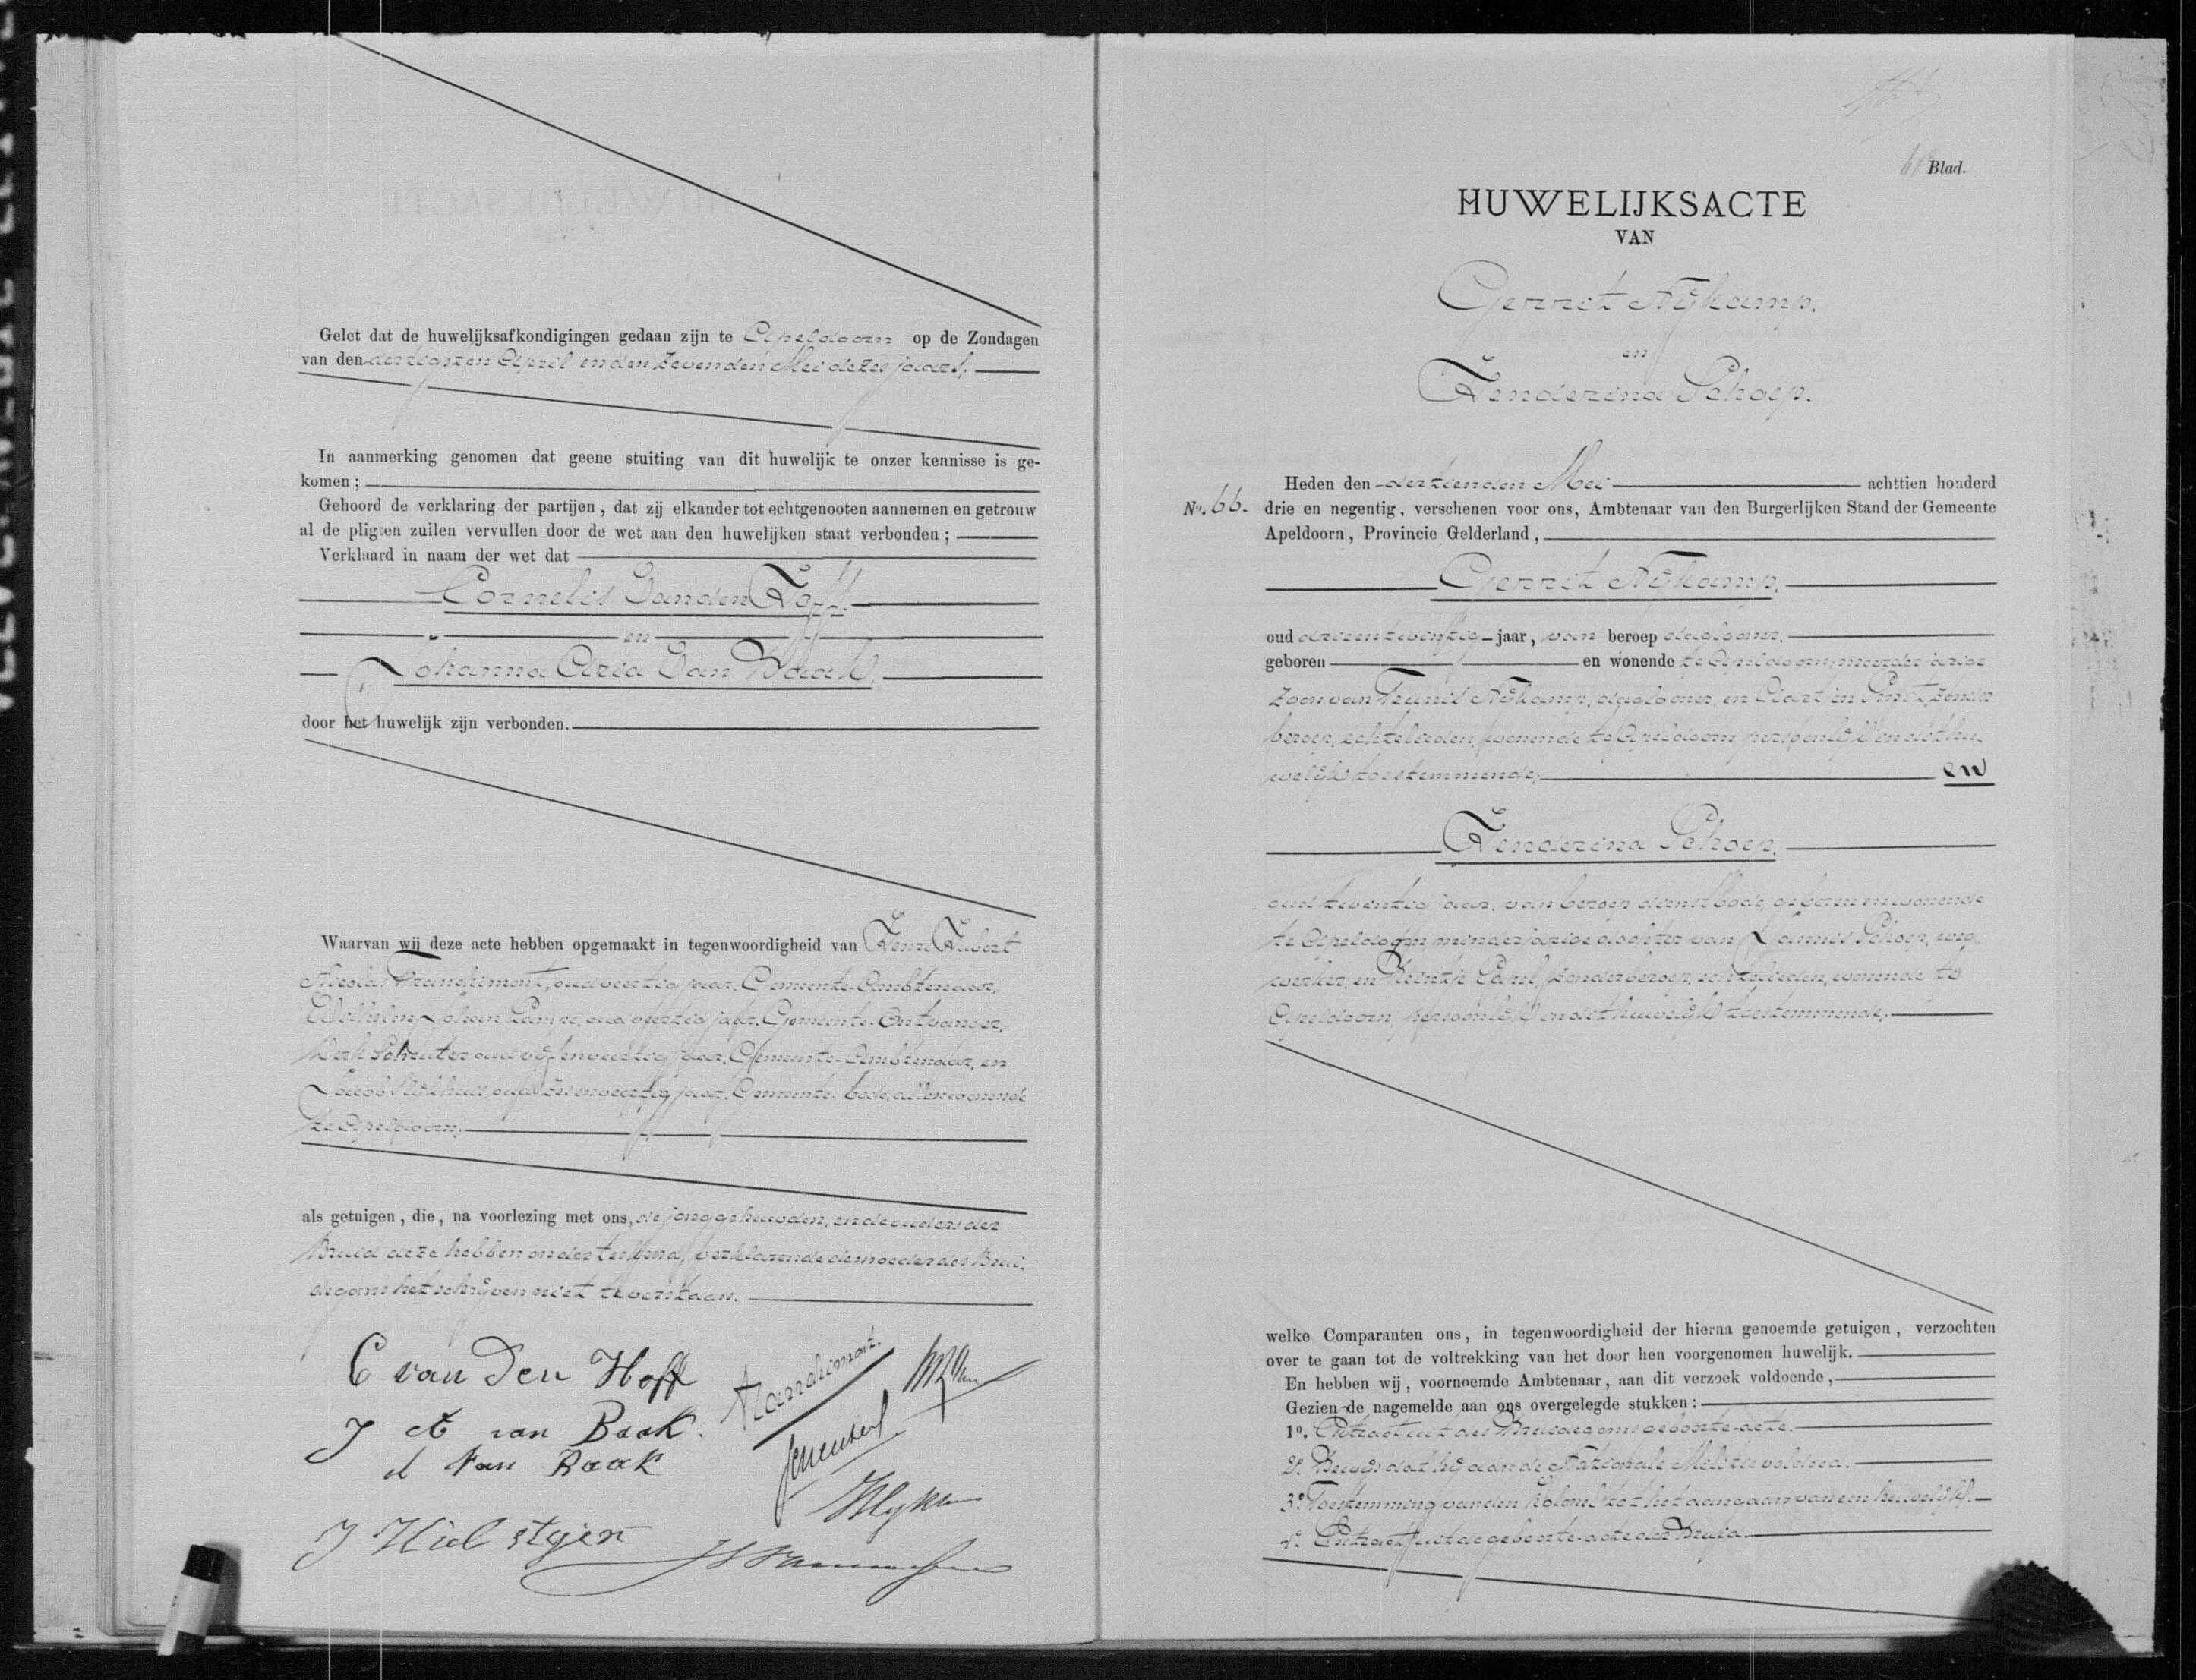 Gelet dat de huwelijksafkondigingen gedaan zijn te Apeldoorn op de Zondagen
van den dertigsten April en den zevenden Mei dezes jaars;
In aanmerking genomen dat geene stuiting van dit huwelijk te onzer kennisse is ge-
komen;
Gehoord de verklaring der partijen, dat zij elkander tot echtgenooten aannemen en getrouw
al de pligten zullen vervullen door de wet aan den huwelijken staat verbonden;
Verklaard in naam der wet dat
Cornelis Van den Hoff
en
Johanna Aria Van Baak,
door het huwelijk zijn verbonden.
Waarvan wij deze acte hebben opgemaakt in tegenwoordigheid van Henri Hubert
Nicolas Franchimont, oud veertig jaar, Gemeente-Ambtenaar,
Wilhelm Johan oud veertig jaar, Gemeente-Ontvanger,
Derk Schruter oud vijfenveertig jaar, Gemeente-Ambtenaar, en
Jacob oud zesenveertig jaar, Gemeente-bode, allen wonende
te Apeldoorn,
als getuigen, die, na voorlezing met ons, de jonggehuwden, en de ouders der
Bruid deze hebben onderteekend, verklarende de moeder des Brui-
degoms het schrijven niet te verstaan.
C van Den Hoff
Franchimont.
J A van Baak.
d van Baak
HUWELIJKSACTE
VAN
Blad.
Gerrit Nijkamp,
en
Henderina Schoep.
Heden den dertienden Mei achttien honderd
No. 66. drie en negentig, verschenen voor ons, Ambtenaar van den Burgerlijken Stand der Gemeente
Apeldoorn, Provincie Gelderland,
Gerrit Nijkamp,
oud drieentwintig jaar, van beroep daglooner,
geboren en wonende te Apeldoorn, meerderjarige
zoon van Teunis Nijkamp, daglooner, en Aartjen Smit, zonder
beroep, echtelieden, wonende te Apeldoorn, persoonlijk in dit hu-
welijk toestemmende, en
Henderina Schoep,
oud twintig jaar, van beroep dienstbode, geboren en wonende
te Apeldoorn, minderjarige dochter van Jannes Schoep, weg-
werker, en Reintje Capel, zonder beroep, echtelieden, wonende te
Apeldoorn, persoonlijk in dit huwelijk toestemmende,
welke Comparanten ons, in tegenwoordigheid der hierna genoemde getuigen, verzochten
over te gaan tot de voltrekking van het door hen voorgenomen huwelijk.
En hebben wij, voornoemde Ambtenaar, aan dit verzoek voldoende,
Gezien de nagemelde aan ons overgelegde stukken:
1o. Extract uit des Bruidegoms geboorte-acte.
2o. Bewijs dat hij aan de Nationale Militie voldeed.
3o. Toestemming van den Kolonel tot het aangaan van een huwelijk.
4o. Extract uit de geboorte-acte der Bruid.